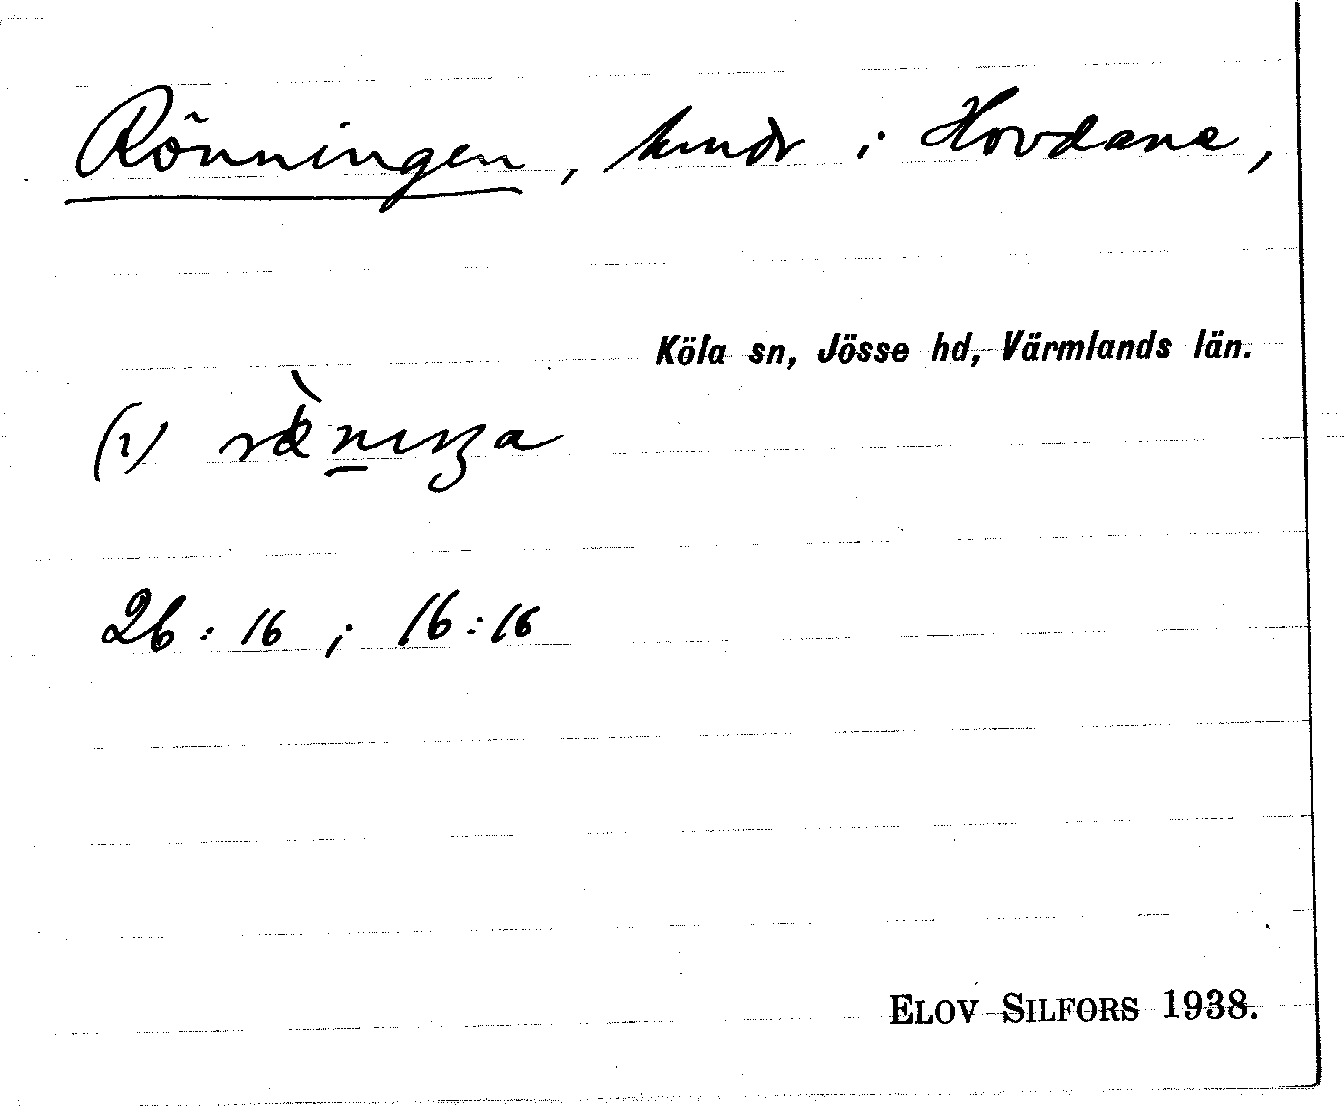 Rönningen, hmdr i Hovdane,
Köla sn, Jösse hd, Värmlands län.
(1)
26:16; 16:16
ELOV SILFORS 1938.